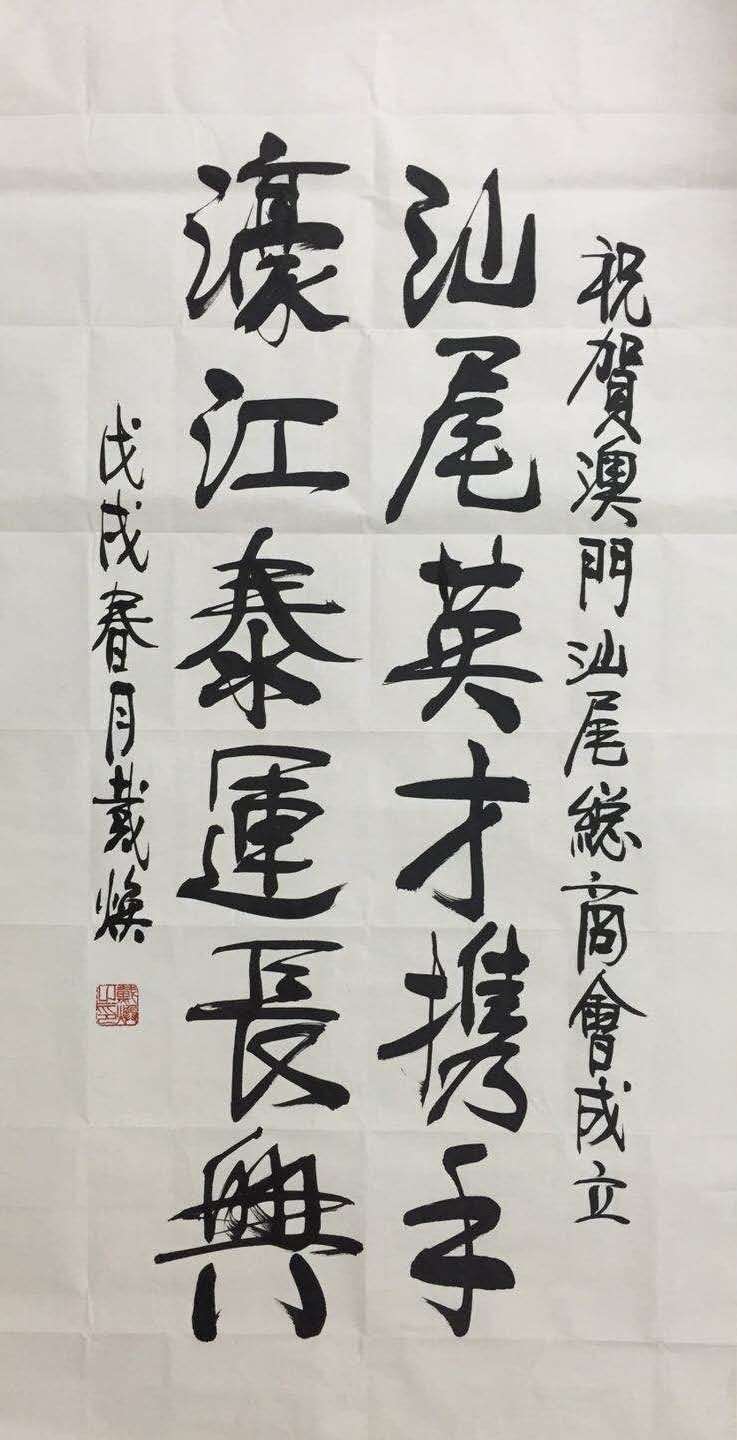 祝賀澳門汕尾總商會成立
汕尾英才携手
濠江泰運長興
戊戌春月戴煥
戴煥之印